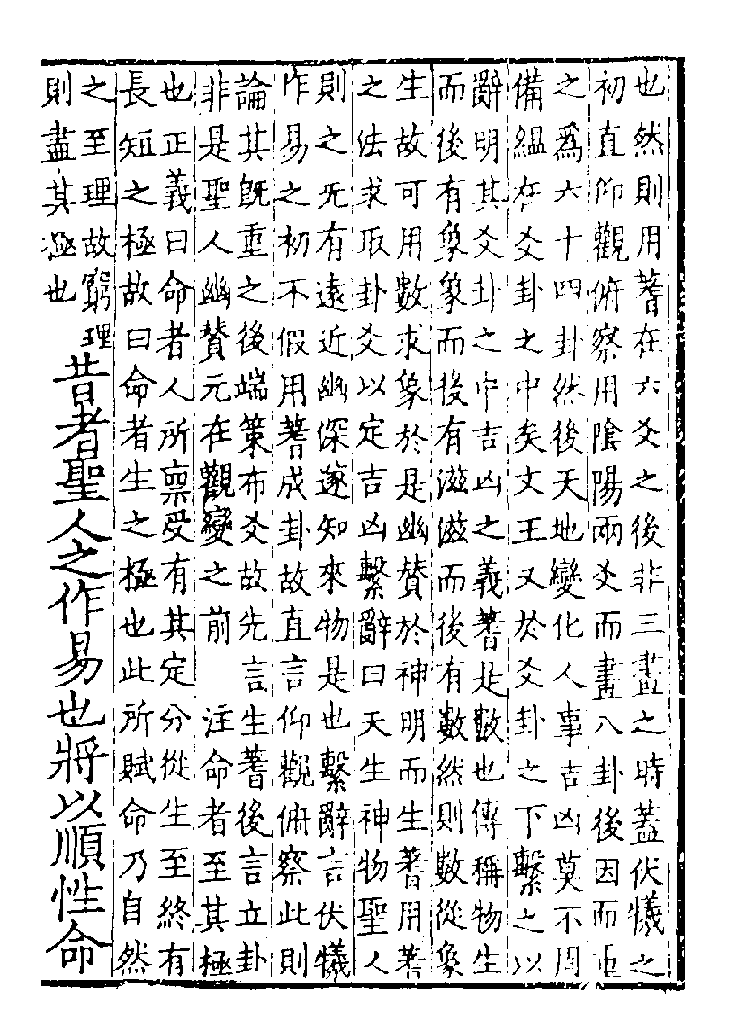 也然則用蓍在六爻之後非三畫之時蓋伏犧之
初直仰觀俯察用陰陽兩爻而畫八卦後因而重
之爲六十四卦然後天地變化人事吉凶莫不周
備緼在爻卦之中矣文王又於爻卦之下繫之以
辭明其爻卦之中吉凶之義蓍是數也傳稱物生
而後有象象而後有滋滋而後有數然則數從象
生故可用數求象於是幽贊於神明而生蓍用蓍
之法求取卦爻以定吉凶繫辭曰天生神物聖人
則之无有遠近幽深遂知來物是也繫辭言伏犧
作易之初不假用蓍成卦故直言仰觀俯察此則
論其既重之後端策布爻故先言生蓍後言立卦
非是聖人幽贊元在觀變之前　注命者至其極
也正義曰命者人所禀受有其定分從生至終有
長短之極故曰命者生之極也此所賦命乃自然
之至理故窮理
則盡其極也
昔者聖人之作易也將以順性命